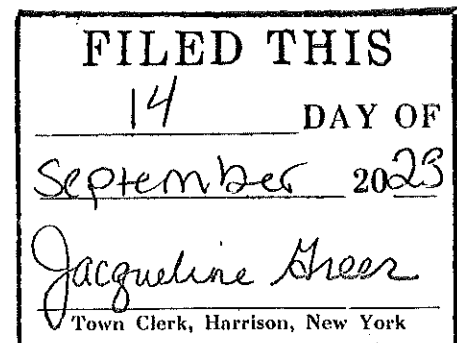 FILED THIS
14 DAY OF
September 2023
Jacqueline Greer
Town Clerk, Harrison, New York